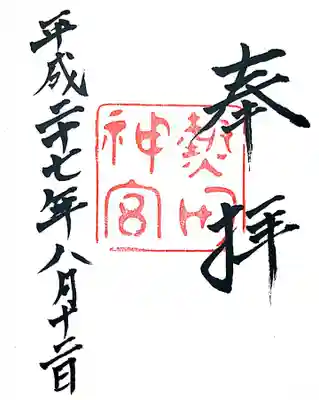 奉拝
熱田
神宮
平成二十七年八月十二日